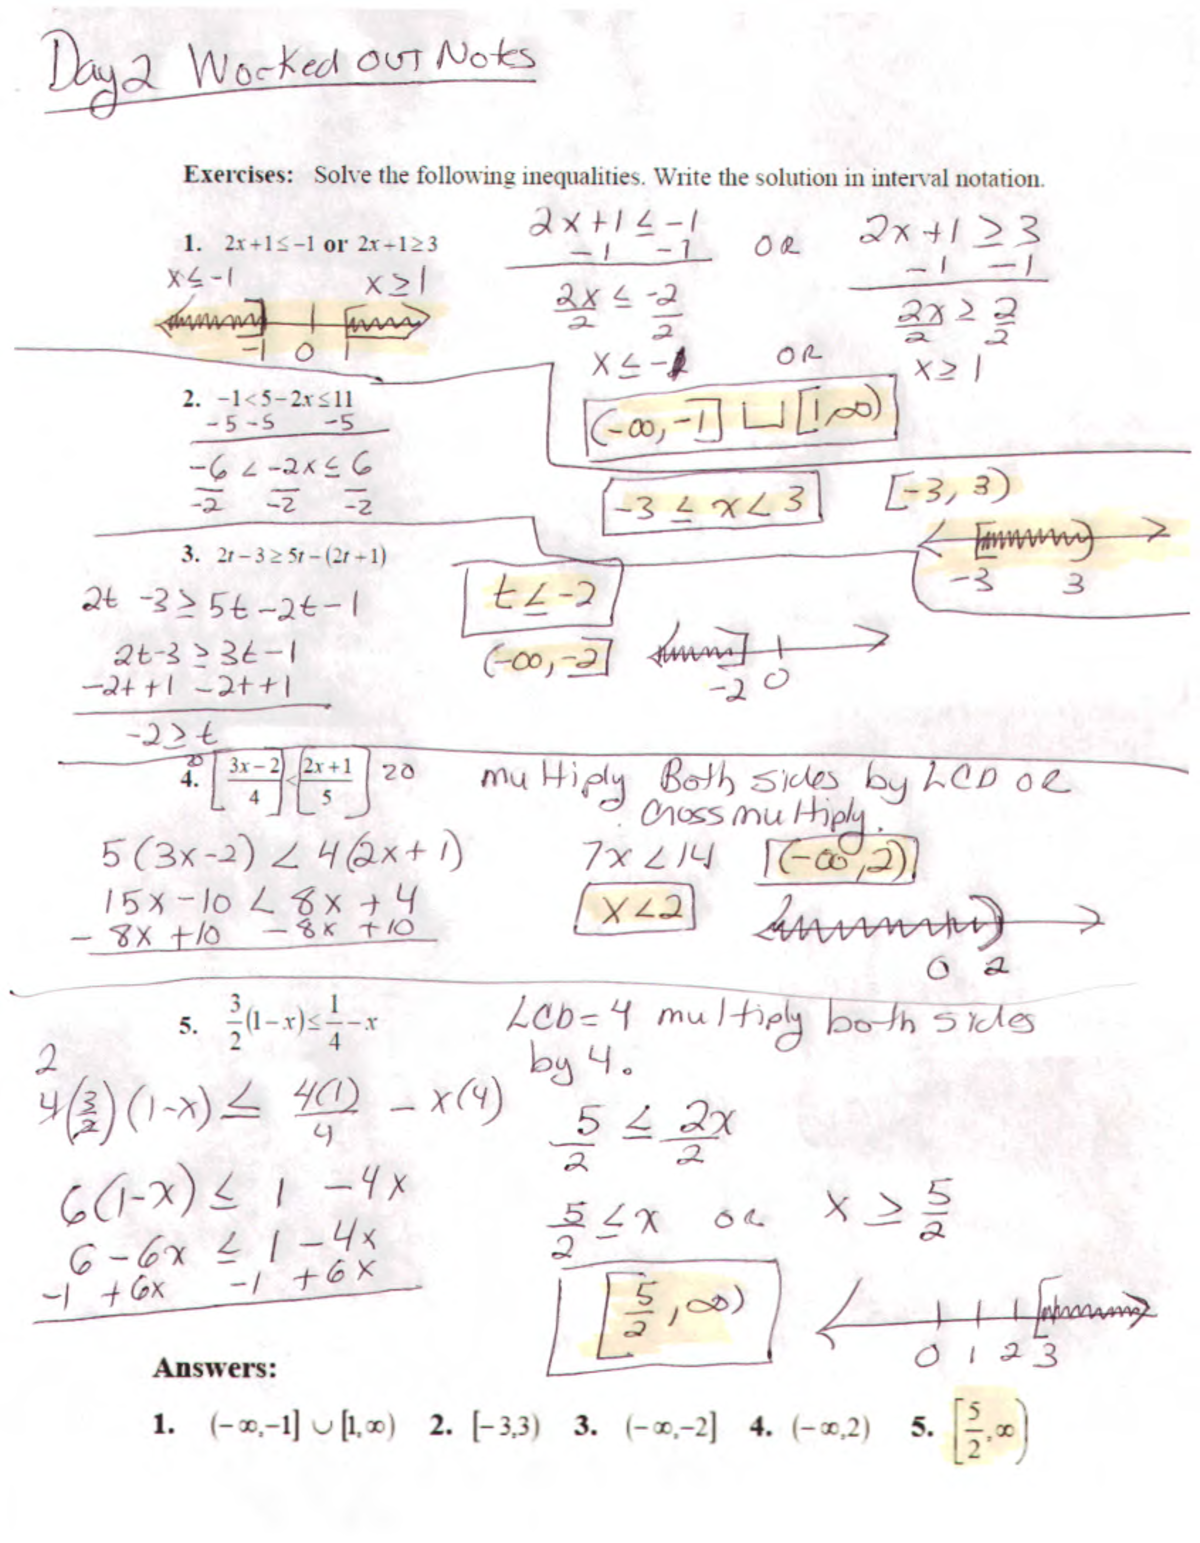 Day 2 Worked out Notes
Exercises: Solve the following inequalities. Write the solution in interval notation.
1. 2x+1≤-1 or 2x+1≥3
x≤-1 x≥1
-1 0 1
2x+1≤-1 OR 2x+1≥3
-1 -1 -1 -1
2x/2 ≤ -2/2 2x/2 ≥ 2/2
x≤-1 OR x≥1
(-∞,-1] ∪ [1,∞)
2. -1<5-2x≤11
-5 -5 -5
-6/-2 < -2x/-2 ≤ 6/-2
-3≤x<3 [-3, 3)
-3 3
3. 2t-3≥5t-(2t+1)
2t-3≥5t-2t-1
2t-3≥3t-1
-2t+1 -2t+1
-2≥t
t≤-2
(-∞,-2]
-2 0
4. 20[(3x-2)/4]<[(2x+1)/5]20
multiply Both sides by LCD OR
cross multiply.
5(3x-2)<4(2x+1)
15x-10<8x+4
-8x+10 -8x+10
7x<14 (-∞,2)
x<2
0 2
5. 3/2(1-x)≤1/4-x
LCD=4 multiply both sides
by 4.
2
4(3/2)(1-x)≤4(1)/4-x(4)
6(1-x)≤1-4x
6-6x≤1-4x
-1+6x -1+6x
5/2≤2x/2
5/2≤x OR x≥5/2
[5/2,∞)
0 1 2 3
Answers:
1. (-∞,-1]∪[1,∞) 2. [-3,3) 3. (-∞,-2] 4. (-∞,2) 5. [5/2,∞)